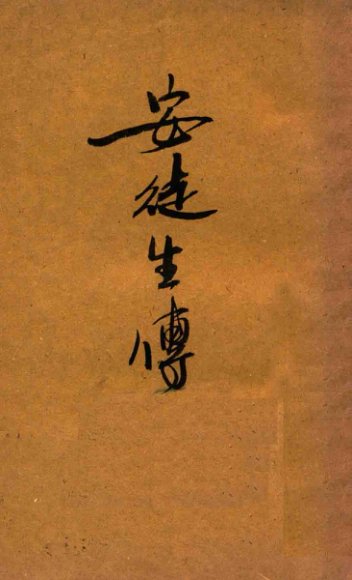 安徒生傳